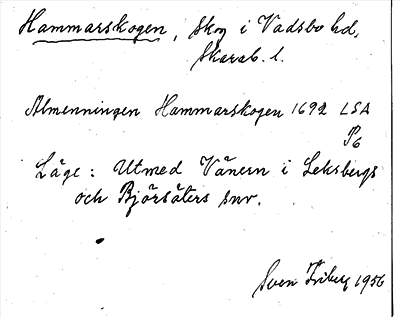 Hammarskogen, skog i Vadsbo hd,
Skarab. l.
Almenningen Hammarskogen 1692 LSA
P6
Läge: Utmed Vänern i Leksbergs
och Björsäters snr.
Sven Friberg 1956